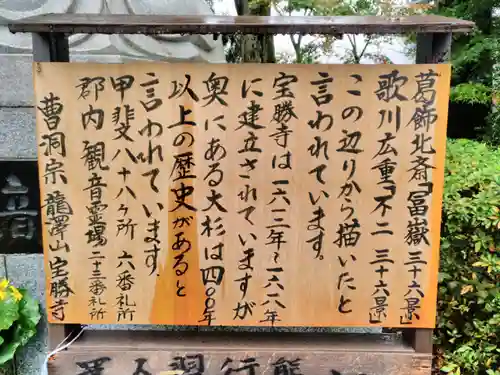 葛飾北斎「富嶽三十六景」
歌川広重「不二三十六景」
この辺りから描いたと
言われています。
宝勝寺は一六一三年〜一六一八年
に建立されていますが
奥にある大杉は四〇〇年
以上の歴史があると
言われています
甲斐八十八ヶ所 六番札所
郡内観音霊場 二十三番札所
曹洞宗 龍澤山 宝勝寺